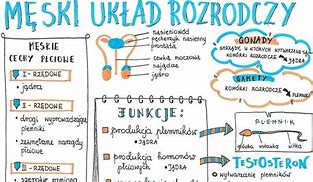 MĘSKI UKŁAD ROZRODCZY
MĘSKIE
CECHY PŁCIOWE
I - RZĘDOWE
• jądra
II - RZĘDOWE
• drogi wyprowadzające
plemniki
• zewnętrzne narządy
płciowe
III - RZĘDOWE
nasieniowód
pęcherzyk nasienny
prostata
cewka moczowa
najądrze
jądro
FUNKCJE:
• produkcja plemników
• JĄDRA
• produkcja hormonów
płciowych
• JĄDRA
GONADY
NARZĄDY, W KTÓRYCH WYTWARZANE SĄ
KOMÓRKI ROZRODCZE
JĄDRA
GAMETY
KOMÓRKI ROZRODCZE
PLEMNIKI
PLEMNIK
główka
wstawka
witka
TESTOSTERON
• wytwarzanie plemników